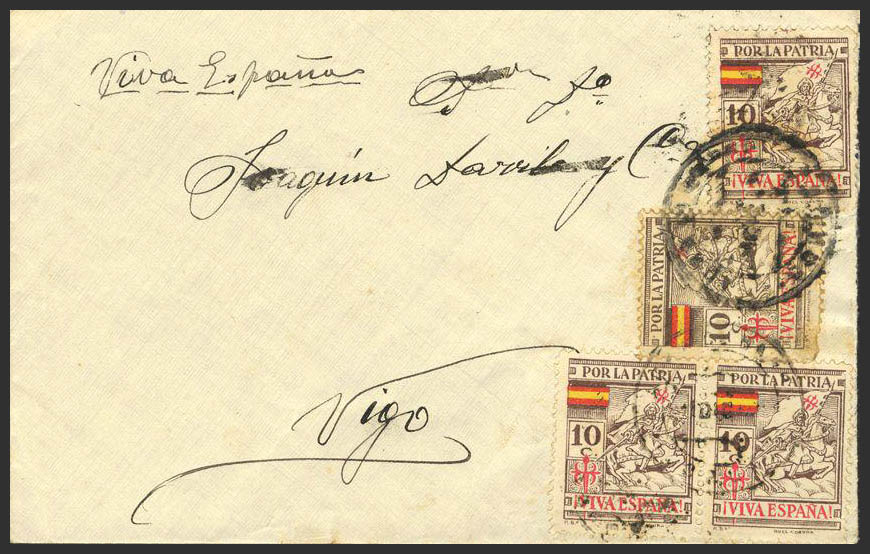 Viva España
Joaquín Davila y Cia
Vigo
POR LA PATRIA
10
¡VIVA ESPAÑA!
POR LA PATRIA
10
¡VIVA ESPAÑA!
POR LA PATRIA
10
C
¡VIVA ESPAÑA!
POR LA PATRIA
10
C
¡VIVA ESPAÑA!